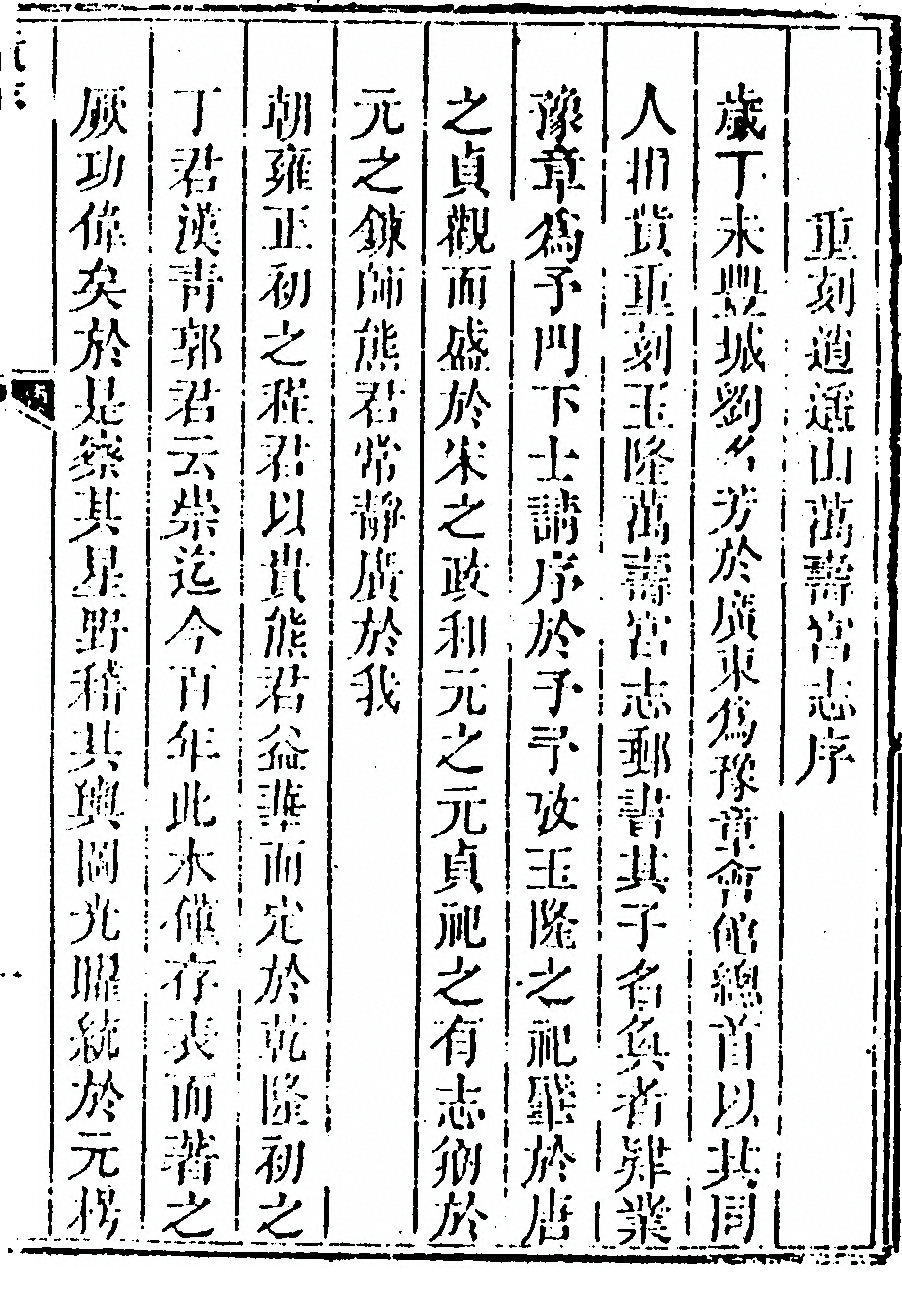 重刻逍遥山萬壽宮志序
歲丁未豐城劉名芳於廣東為豫章會館總首以其同
人捐貲重刻玉隆萬壽宮志郵書其子名負者肄業
豫章為予門下士請序於予予攷玉隆之祀肇於唐
之貞觀而盛於宋之政和元之元貞祀之有志剏於
元之鍊師熊君常靜廣於我
朝雍正初之程君以貴熊君益華而定於乾隆初之
丁君漢青郭君云崇迄今百年此本僅存表而著之
厥功偉矣於是察其星野稽其輿圖光曜統於元枵